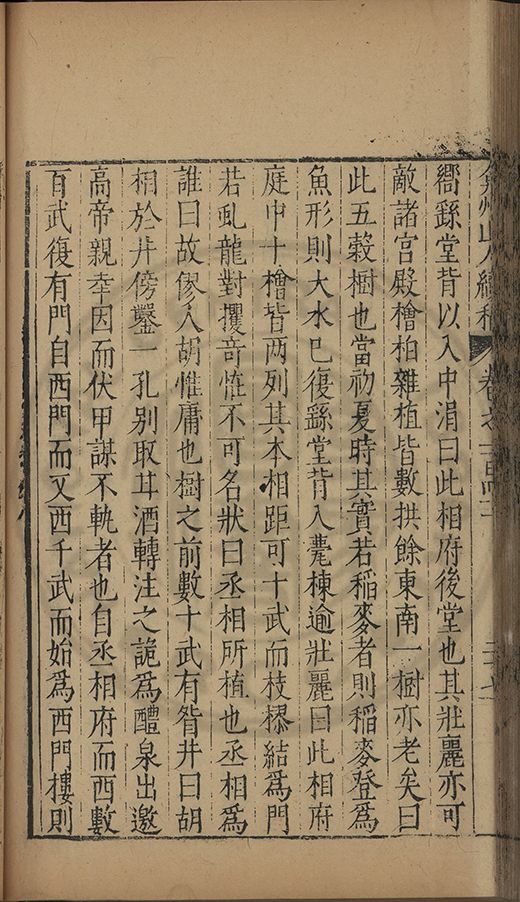 弇州山人續稿 卷之一百四十
嚮繇堂背以入中涓曰此相府後堂也其壯麗亦可
敵諸宮殿檜柏雜植皆數拱餘東南一樹亦老矣曰
此五穀樹也當初夏時其實若稻麥者則稻麥登為
魚形則大水已復繇堂背入甍棟逾壯麗曰此相府
庭中十檜皆兩列其本相距可十武而枝樛結為門
若虬龍對攫奇恠不可名狀曰丞相所植也丞相為
誰曰故僇人胡惟庸也樹之前數十武有眢井曰胡
相於井傍鑿一孔別取甘酒轉注之詭為醴泉出邀
高帝親幸因而伏甲謀不軌者也自丞相府而西數
百武復有門自西門而又西千武而始為西門樓則